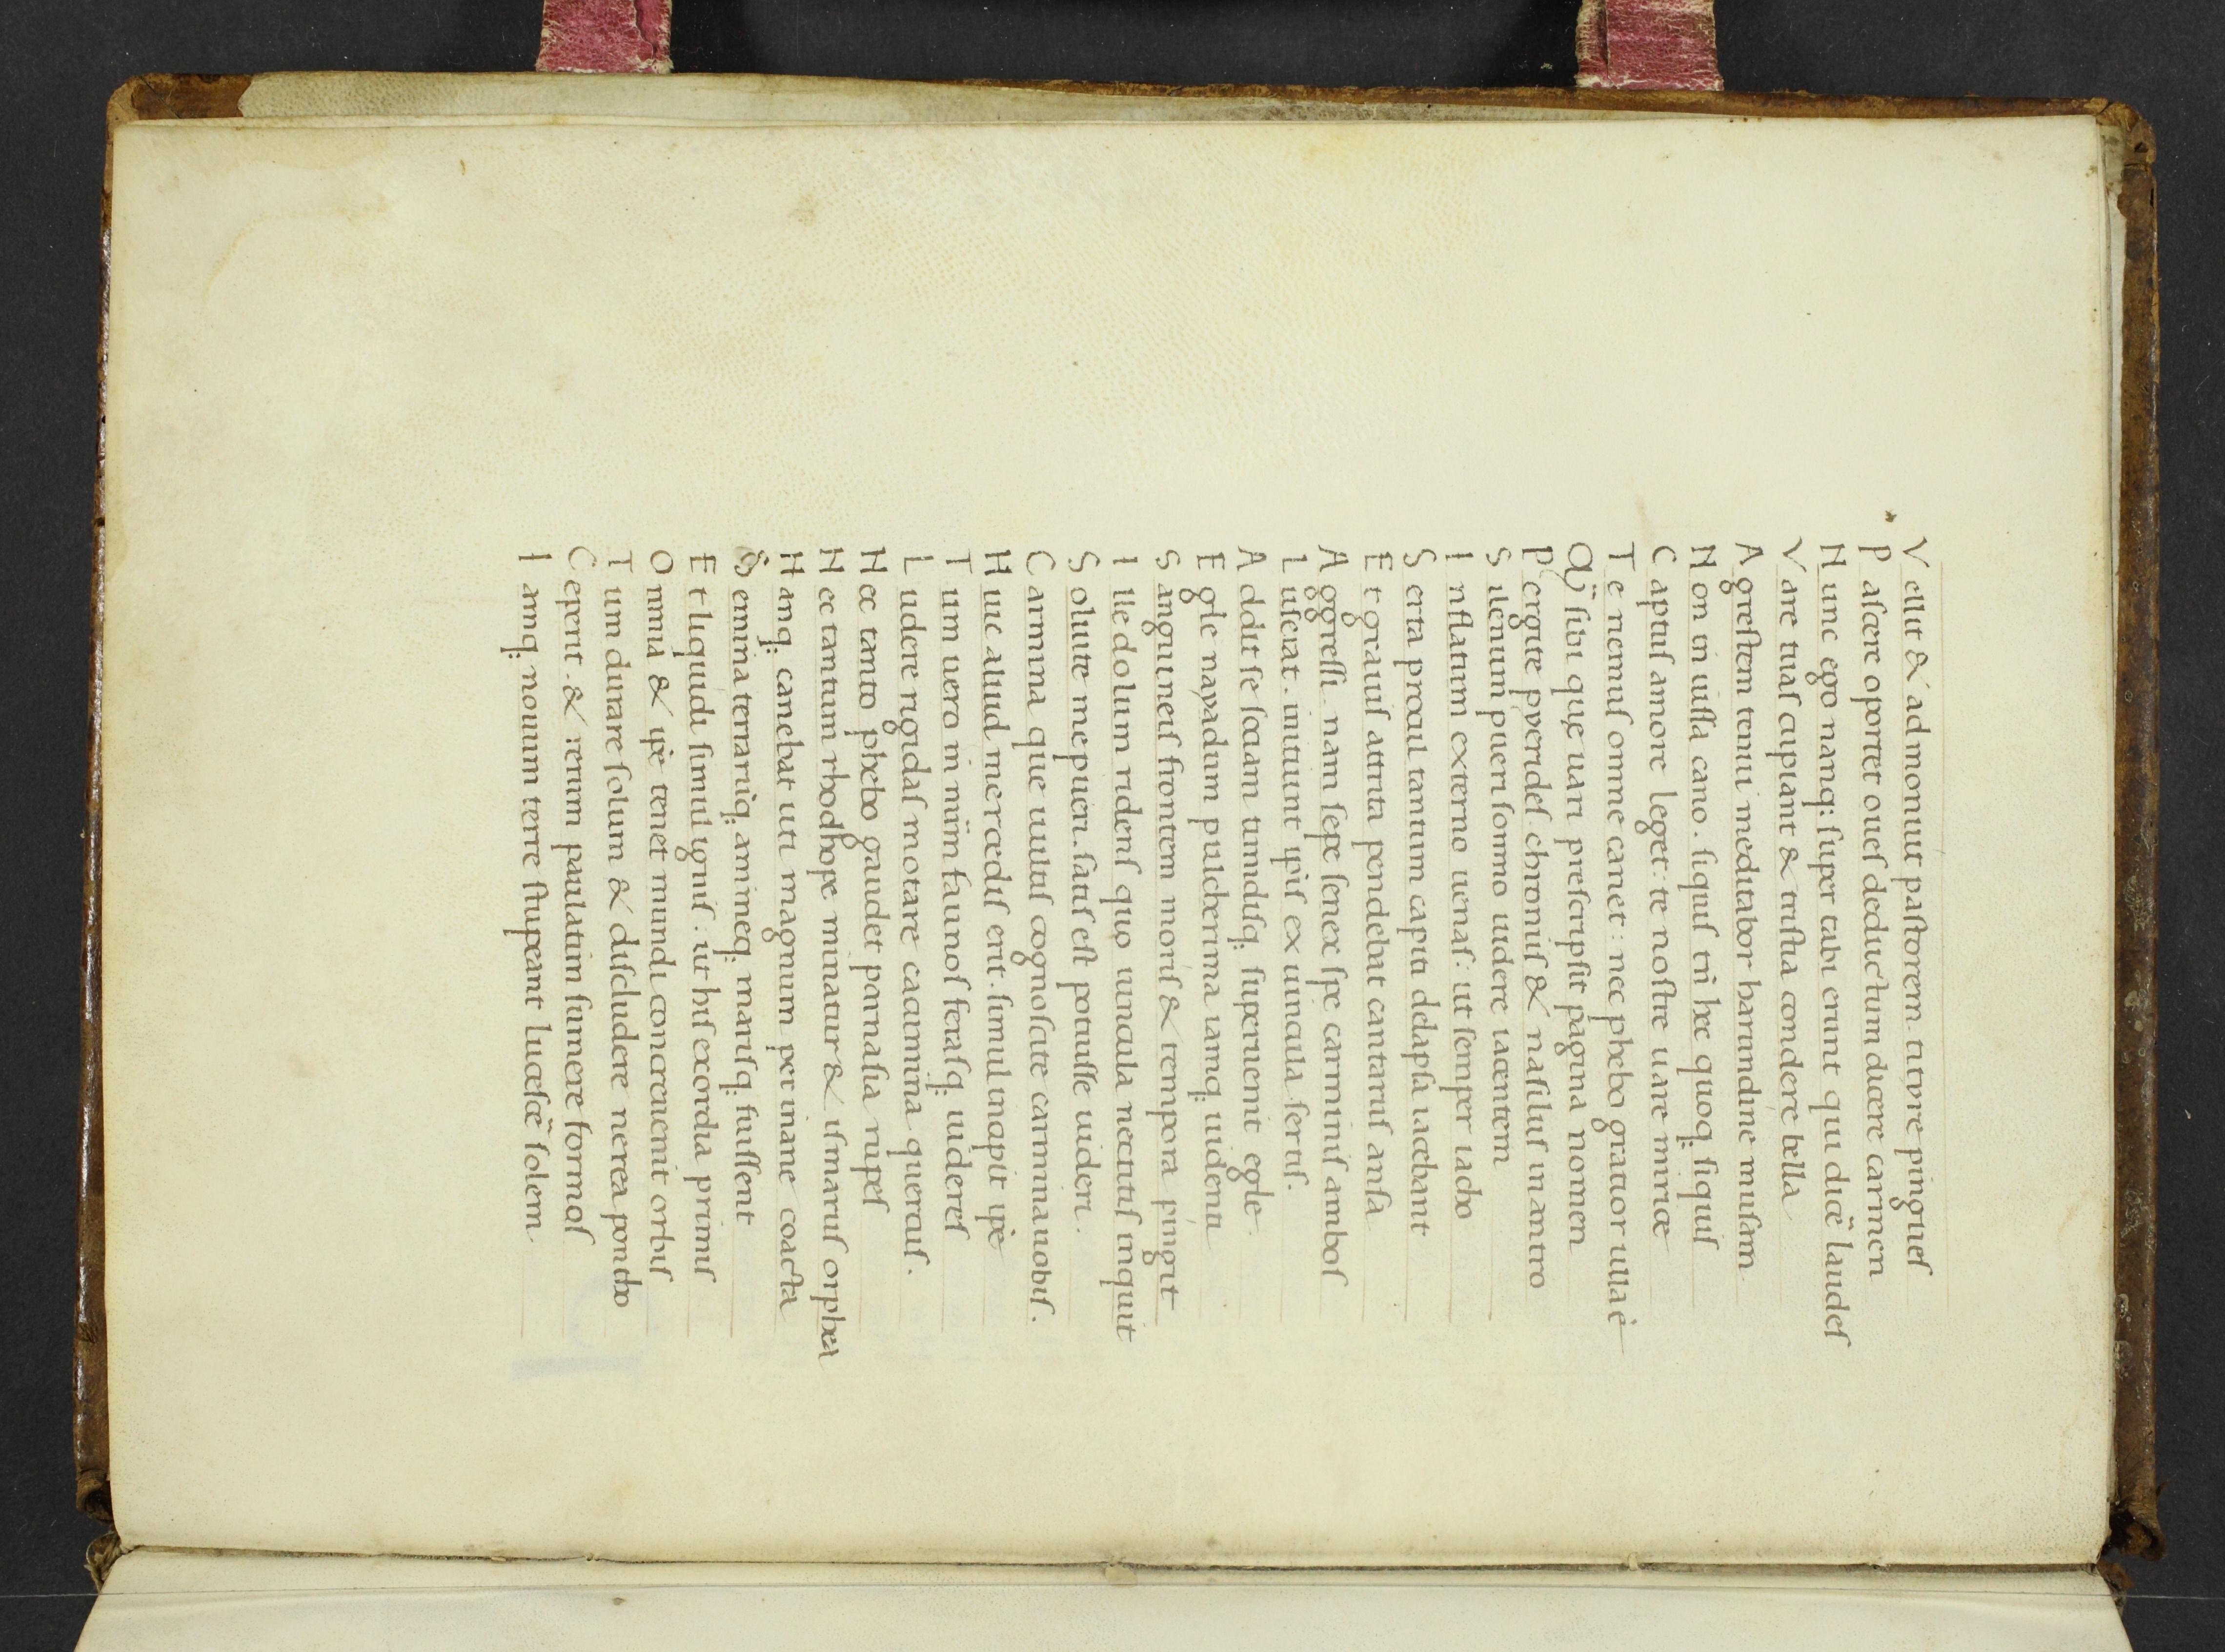 Vellit & admonuit paſtorem. tityre pingueſ
Paſcere oportet oueſ deductum dicere carmen
Nunc ego nanq: ſuper tibi erunt qui dicẽ laudeſ
Vare tuaſ cupiant & triſtia condere bella
Agreſtem tenui meditabor harundine muſam
Non in iuſſa cano. ſiquiſ tñ hec quoq: ſiquiſ
Captuſ amore leget: te noſtre uare mirice
Te nemuſ omne canet: nec phebo gratior ulla ẽ
Qͥ ſibi quę uari preſcripſit pagina nomen
Pergite pyerideſ. chromiſ & naſiluſ in antro
Silenum pueri ſomno uidere iacentem
Inflatum externo uenaſ: ut ſemper iacho
Serta procul tantum capiti delapſa iacebant
Et grauiſ attrita pendebat cantaruſ anſa
Aggreſſi. nam ſepe ſenex ſpe carminiſ amboſ
Luſerat. initiunt ip̃iſ ex uincula ſertiſ.
Addit ſe ſociam timidiſq: ſuperuenit egle.
Egle nayadum pulcherrima iamq: uidenti
Sanguineiſ frontem moriſ & tempora pingit
Ille dolum ridenſ quo uincula nectitiſ inquit
Soluite me pueri. ſatiſ eſt potuiſſe uideri.
Carmina que uultiſ cognoſcite carmina uobiſ.
Huic aliud mercediſ erit. ſimul incipit ip̃e
Tum uero in nũm faunoſ feraſq: uidereſ
Ludere rigidaſ motare cacumina quercuſ.
Nec tanto phebo gaudet parnaſia rupeſ
Nec tantum rhodhope minatur & iſmaruſ orphea
Hanq: canebat uti magnum per inane coacta
Semina terrarũq: animeq: mariſq: fuiſſent
Et liquidi ſimul igniſ: ut hiſ exordia primiſ
Omnia & ip̃e tenet mundi concreuerit orbiſ
Tum durare ſolum & diſcludere nerea pontho
Ceperit. & rerum paulatim ſumere formaſ
Iamq: nouum terre ſtupeant luceſcẽ ſolem.